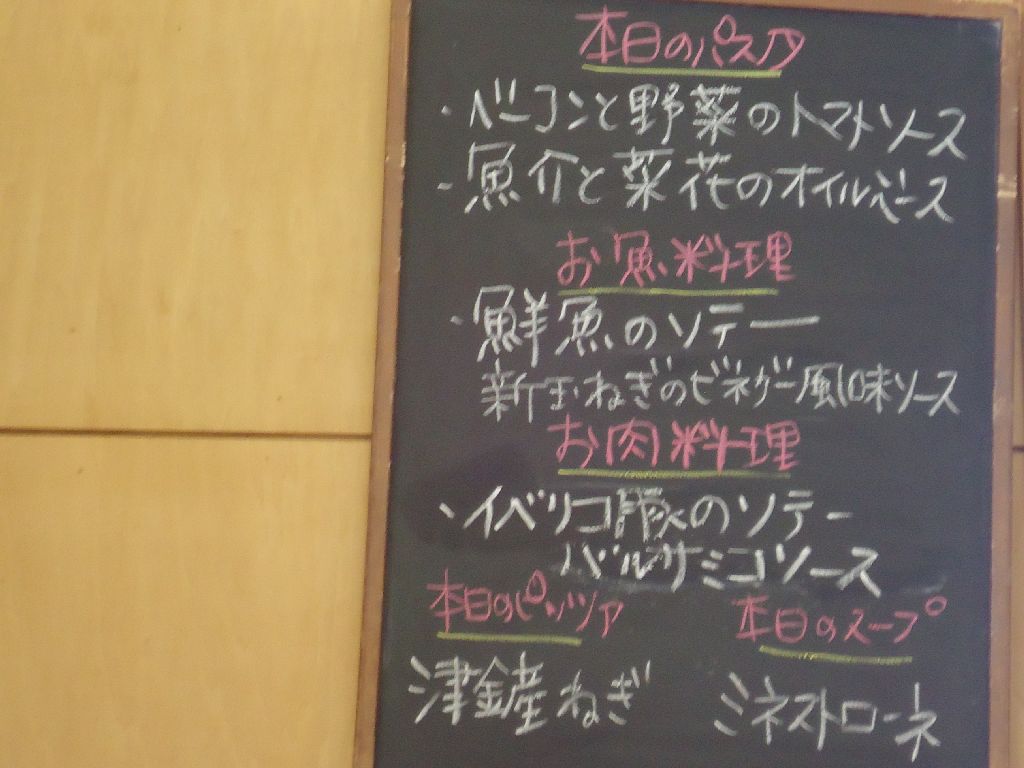 本日のパスタ
・ベーコンと野菜のトマトソース
・魚介と菜花のオイルベース
お魚料理
・鮮魚のソテー
新玉ねぎのビネガー風味ソース
お肉料理
・イベリコ豚のソテー
バルサミコソース
本日のピッツァ
津金産ねぎ
本日のスープ
ミネストローネ